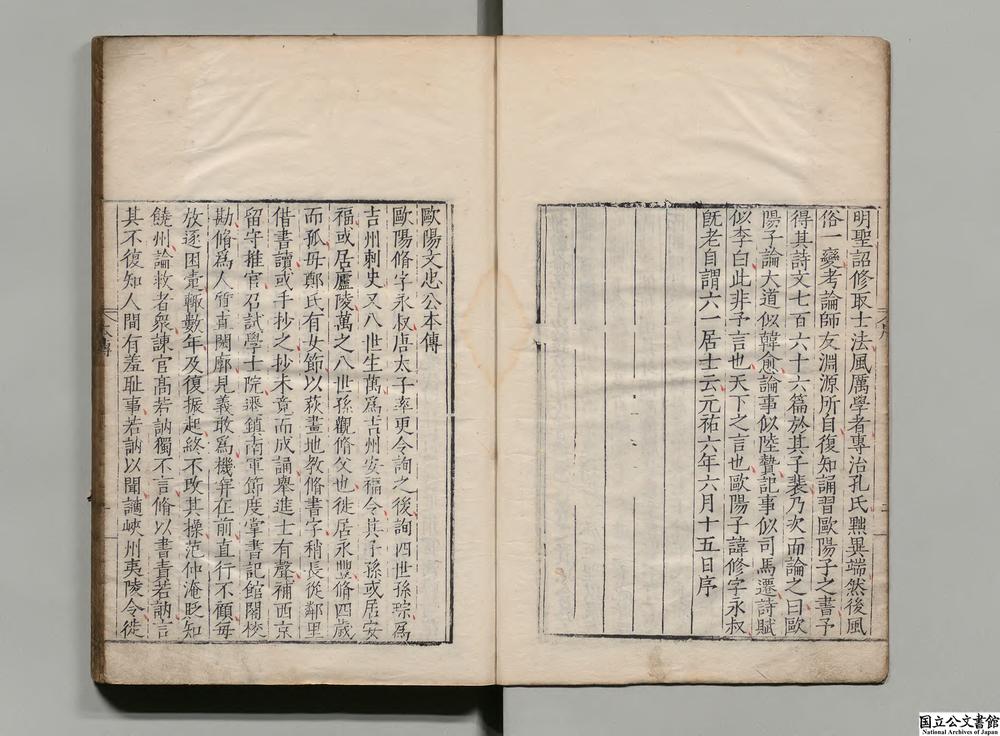 明聖詔修取士法風厲學者專治孔氏黜異端然後風
俗一變考論師友淵源所自復知誦習歐陽子之書予
得其詩文七百六十六篇於其子棐乃次而論之曰歐
陽子論大道似韓愈論事似陸贄記事似司馬遷詩賦
似李白此非予言也天下之言也歐陽子諱修字永叔
旣老自謂六一居士云元祐六年六月十五日序
歐陽文忠公本傳
歐陽脩字永叔唐太子率更令詢之後詢四世孫琮爲
吉州刺史又八世生萬爲吉州安福令其子孫或居安
福或居廬陵萬之八世孫觀脩父也徙居永豐脩四歲
而孤母鄭氏有女節以荻畫地教脩書字稍長從鄰里
借書讀或手抄之抄未竟而成誦舉進士有聲補西京
留守推官召試學士院遷鎮南軍節度掌書記館閣校
勘脩爲人質直闊廓見義敢爲機穽在前直行不顧每
放逐困躓輒數年及復振起終不攺其操范仲淹貶知
饒州論救者衆諫官髙若訥獨不言脩以書責若訥言
其不復知人間有羞耻事若訥以聞謫峽州夷陵令徙
国立公文書館
National Archives of Japan